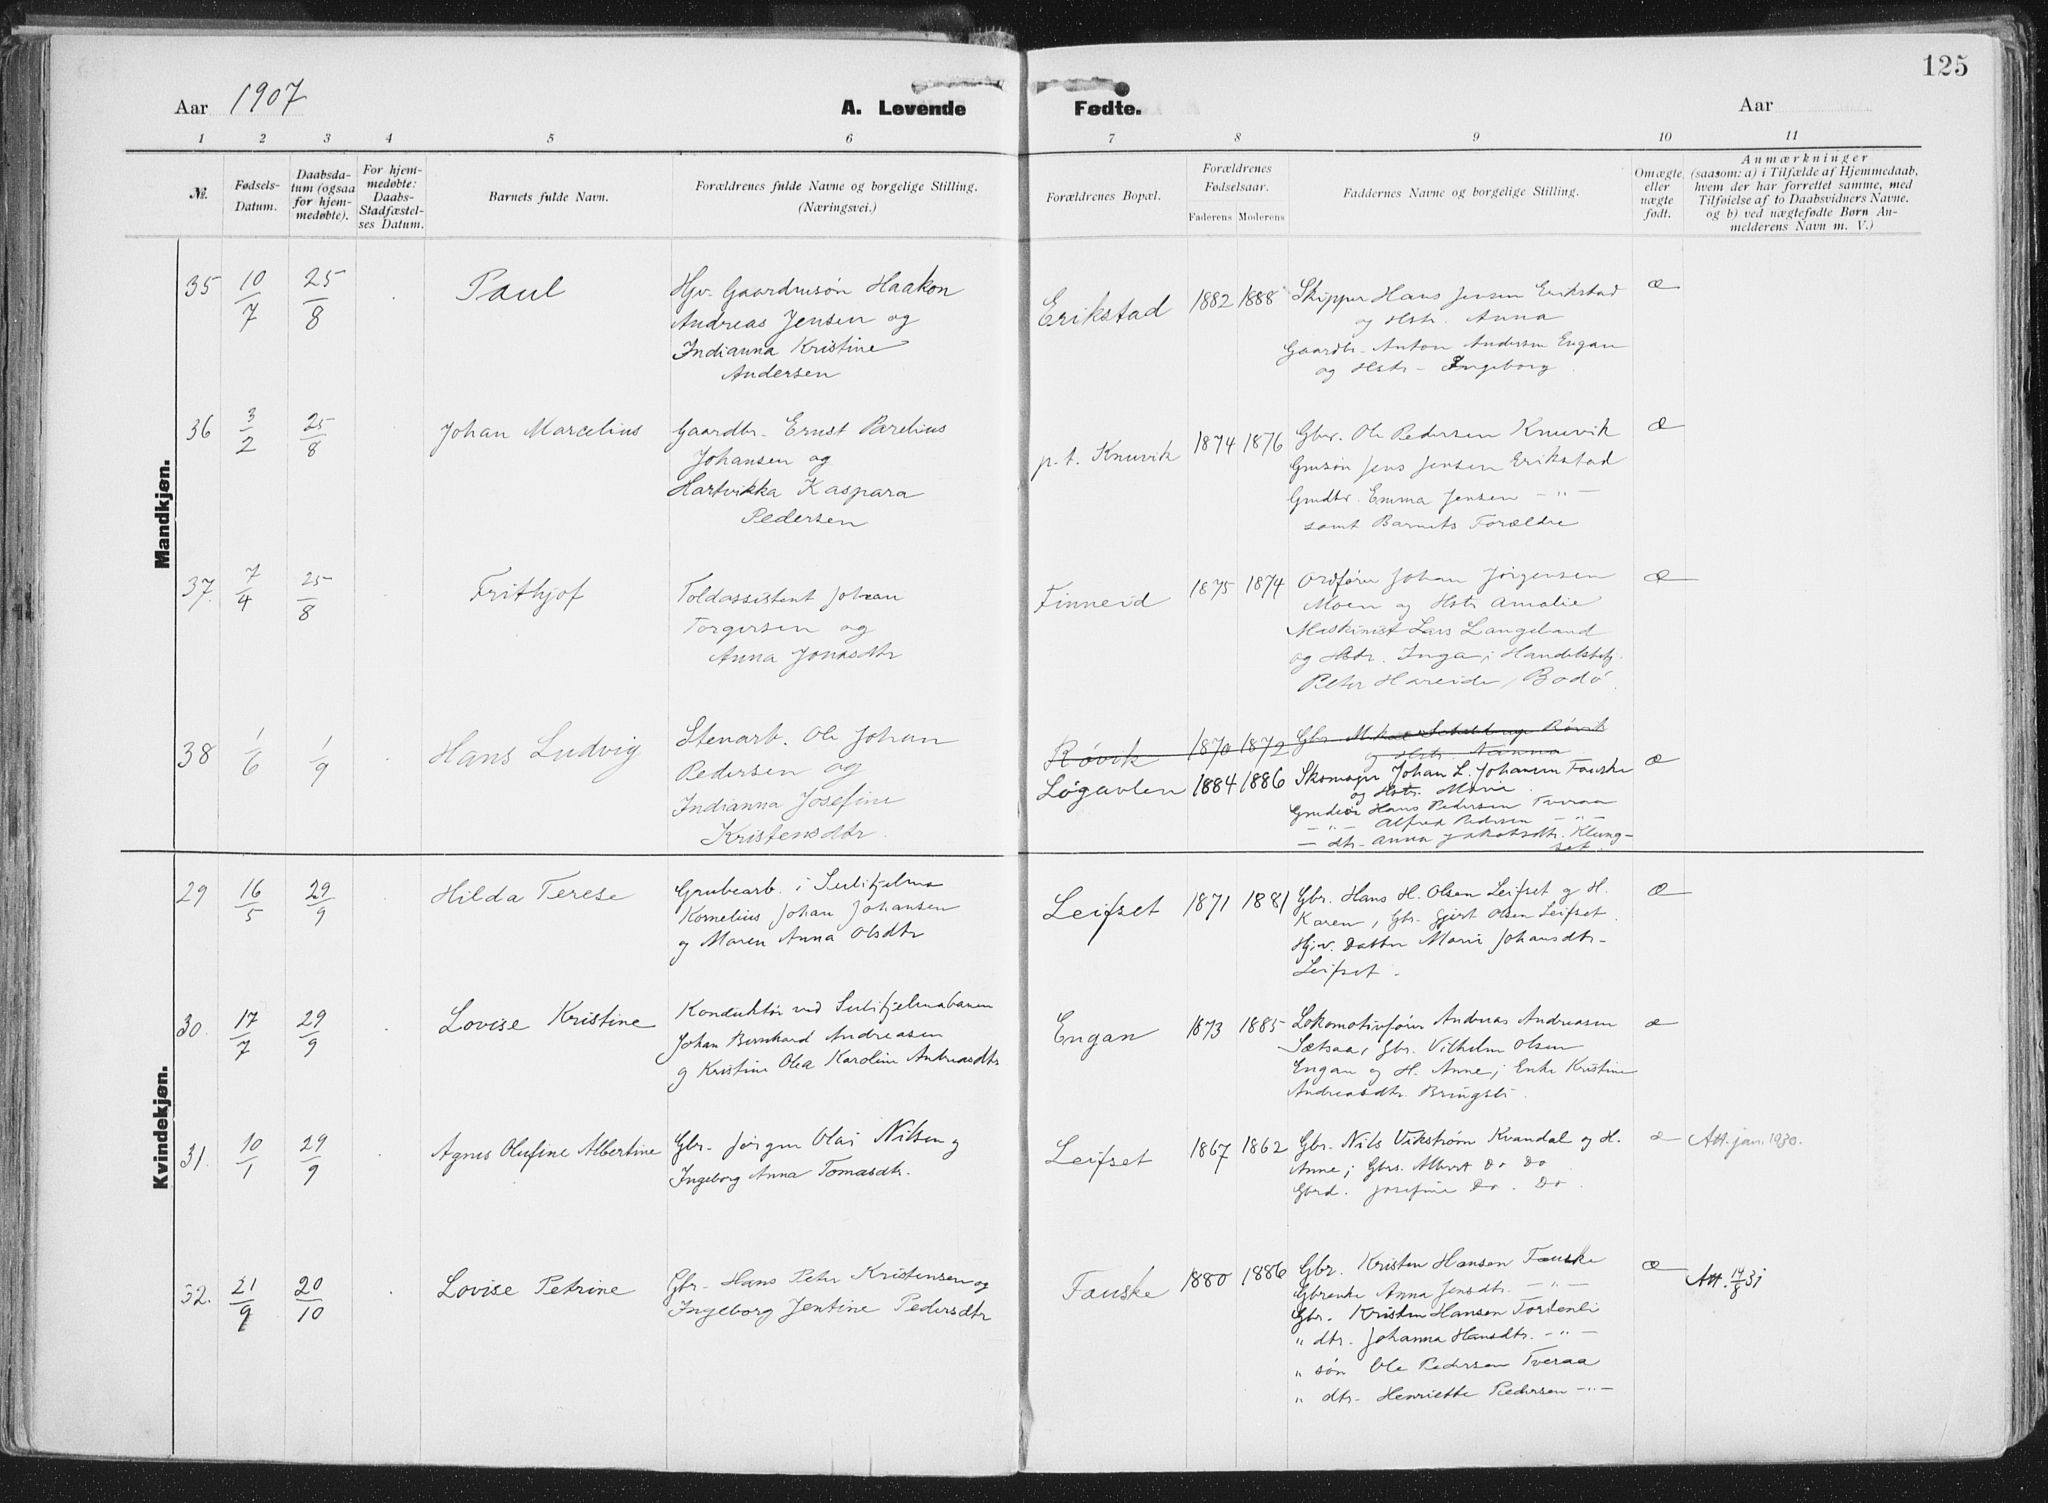 125
Aar 1907
A. Levende Fødte.
Aar
1 2 3 4 5 6 7 8 9 10 11
№.
Fødsels-
Datum.
Daabsda-
tum (ogsaa
for hjem-
medøbte).
For hjem-
medøbte:
Daabs-
Stadfæstel-
ses Datum.
Barnets fulde Navn.
Forældrenes fulde Navne og borgelige Stilling.
(Næringsvei.)
Forældrenes Bopæl.
Forældrenes
Fødselsaar.
Faderens Moderens
Faddernes Navne og borgelige Stilling.
Omægte
eller
uægte
født.
Anmærkninger
(saasom: a) i Tilfælde af Hjemmedaab,
hvem der har forrettet samme, med
Tilføielse af to Daabsvidners Navne.
og b) ved uægtefødte Børn An-
melderens Navn m. V.)
Mandkjøn.
35 10/7 25/8 Paul
Hjv. Gaardmsøn Haakon
Andreas Jensen og
Indianna Kristine
Andersen
Erikstad 1882 1888
Skipper Hans Jensen Erikstad
og Hstr. Anna
Gaardbr. Anton Andersen Engan
og Hstr. Ingeborg.
æ
36 3/2 25/8 Johan Marcelius
Gaardbr. Ernst Parelius
Johansen og
Hartvikka Kaspara
Pedersen
p.t. Knuvik 1874 1876
Gbr. Ole Pedersen Knuvik
Gmsøn Jens Jensen Erikstad
Gmdtr. Emma Jensen — " —
samt Barnets Forældre
æ
37. 7/4 25/8 Frithjof
Toldassistent Johan
Torgersen og
Anna Jonasdtr
Finneid 1875 1874
Ordfører Johan Jørgensen
Moen og Hstr Amalie
Maskinist Lars Langeland
og Hstr. Inga; Handelsbetj.
Peter Hareide, Bodø.
æ
38 1/6 1/9 Hans Ludvig
Stenarb. Ole Johan
Pedersen og
Indianna Josefine
Kristensdtr.
Røvik 1870 1872
Gbr Røvik
og Hstr. Nanna
Løgavlen 1884 1886
Skomager Johan L. Johansen Fauske
og Hstr. Marie.
Hans Pedersen Tveraa
— " — Alfred Pedersen — " —
— dtr. Anna Jakobsdtr. Klung-
set.
æ
Kvindekjøn.
29 16/5 29/9 Hilda Terese
Grubearb. i Sulitjelma
Kornelius Johan Johansen
og Maren Anna Olsdtr
Leifset 1871 1881
Gbr. Hans H. Olsen Leifset og H.
Karen, Gbr. Gjert Olsen Leifset.
Hjv. Datter Marie Johansdtr.
Leifset.
æ
30. 17/7 29/9 Lovise Kristine
Konduktør ved Sulitjelmabanen
Johan Bernhard Andreasen
og Kristine Olea Karoline Andreasdtr
Engan 1873 1885
Lokomotivfører Andreas Andreasen
Sætsaa, Gbr. Vilhelm Olsen
Engan og H. Anne; Enke Kristine
Andreasdtr. Bringsli.
æ
31. 10/1 29/9 Agnes Olufine Albertine
Gbr. Jørgen Olai Nilsen og
Ingeborg Anna Tomasdtr.
Leifset 1867 1862
Gbr. Nils Vikstrøm Kvandal og H.
Anne; Gbrs. Albert Do Do
Gbrd. Josefine Do. Do.
æ
Att. jan. 1930.
32. 21/9 20/10 Lovise Petrine
Gbr. Hans Peter Kristensen og
Ingeborg Jentine Pedersdtr
Fauske 1880 1886
Gbr. Kristen Hansen Fauske
Gbrenke Anna Jensdtr. — " —
Gbr. Kristen Hansen Tortenli
" dtr. Johanna Hansdtr. — " —
" søn Ole Pedersen Tveraa
" dtr. Henriette Pedersen — " —
æ
Att. 14/8 31